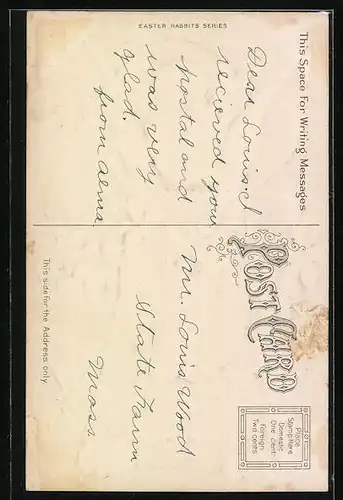 EASTER RABBITS SERIES
This Space For Writing Messages
Dear Louis. I
recieved your
postal and
was very
glad.
from alma
POST CARD
Place
Stamp Here
Domestic
One cent
Foreign
Two cents
Mr. Louis Wood
State Farm
Mass.
This side for the Address only.